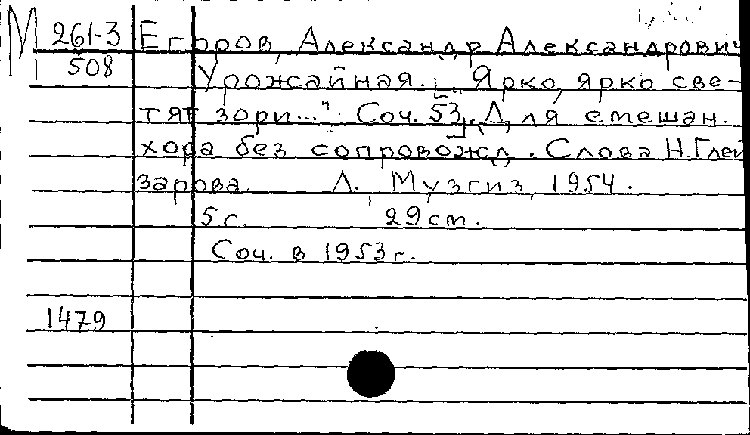 М 261-3 Егоров, Александр Александрович
508 Урожайная. „Ярко, ярко све-
тят зори..." Соч. 53. Для смешан.
хора без сопровожд. Слова Н. Глей
зарова. Л. Музгиз, 1954.
5 с. 29 см.
Соч. в 1953 г.
1479